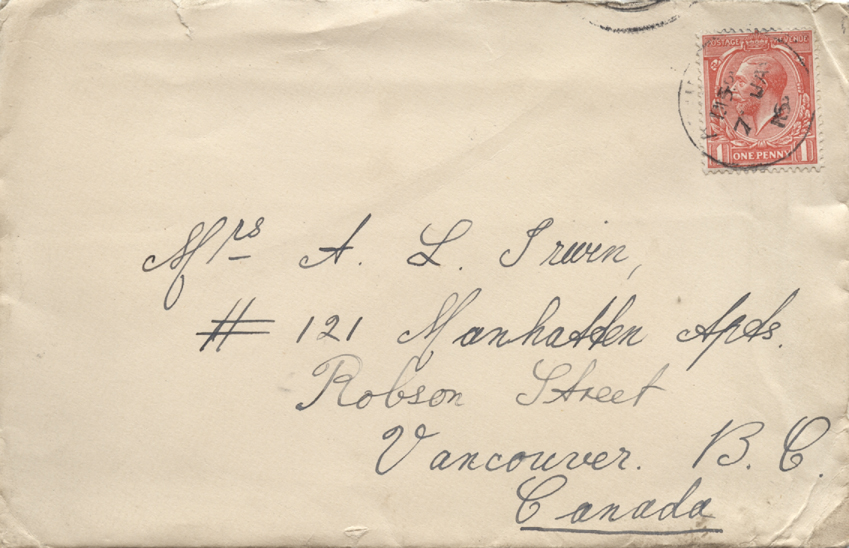 POSTAGE REVENUE
1 ONE PENNY 1
Mrs A. L. Irwin,
# 121 Manhatten Apts.
Robson Street
Vancouver. B. C.
Canada